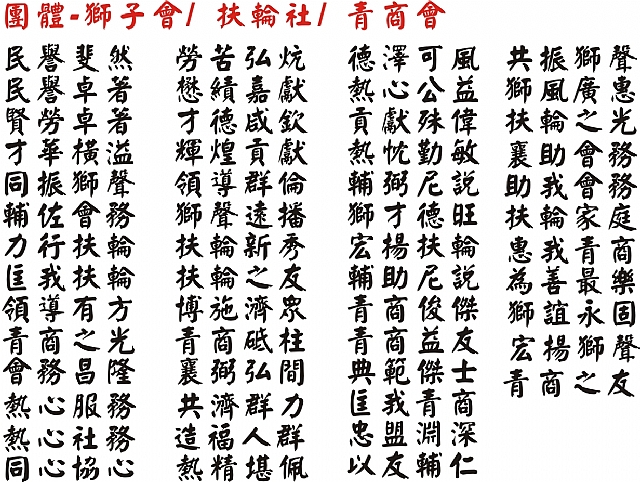 團體-獅子會/ 扶輪社/ 青商會
民譽斐然
民譽卓著
賢勞卓著
才華橫溢
同振獅聲
輔佐會務
力行扶輪
匡我扶輪
領導有方
青商之光
會務昌隆
熱心服務
熱心社務
同心協心
勞苦弘炕
懋績嘉獻
才德咸欽
輝煌貢獻
領導群倫
獅聲遠播
扶輪新秀
扶輪之友
博施濟眾
青商砥柱
襄弼弘間
共濟群力
造福人群
熱精堪佩
德澤可風
熱心公益
貢獻殊偉
熱忱勤敏
輔弼尼說
獅才德旺
宏揚扶輪
輔助尼說
青商俊傑
青商益友
典範傑士
匡我青商
忠盟淵深
以友輔仁
共振獅聲
獅風廣惠
扶輪之光
襄助會務
助我會務
扶輪家庭
惠我青商
為善最樂
獅誼永固
宏揚獅聲
青商之友